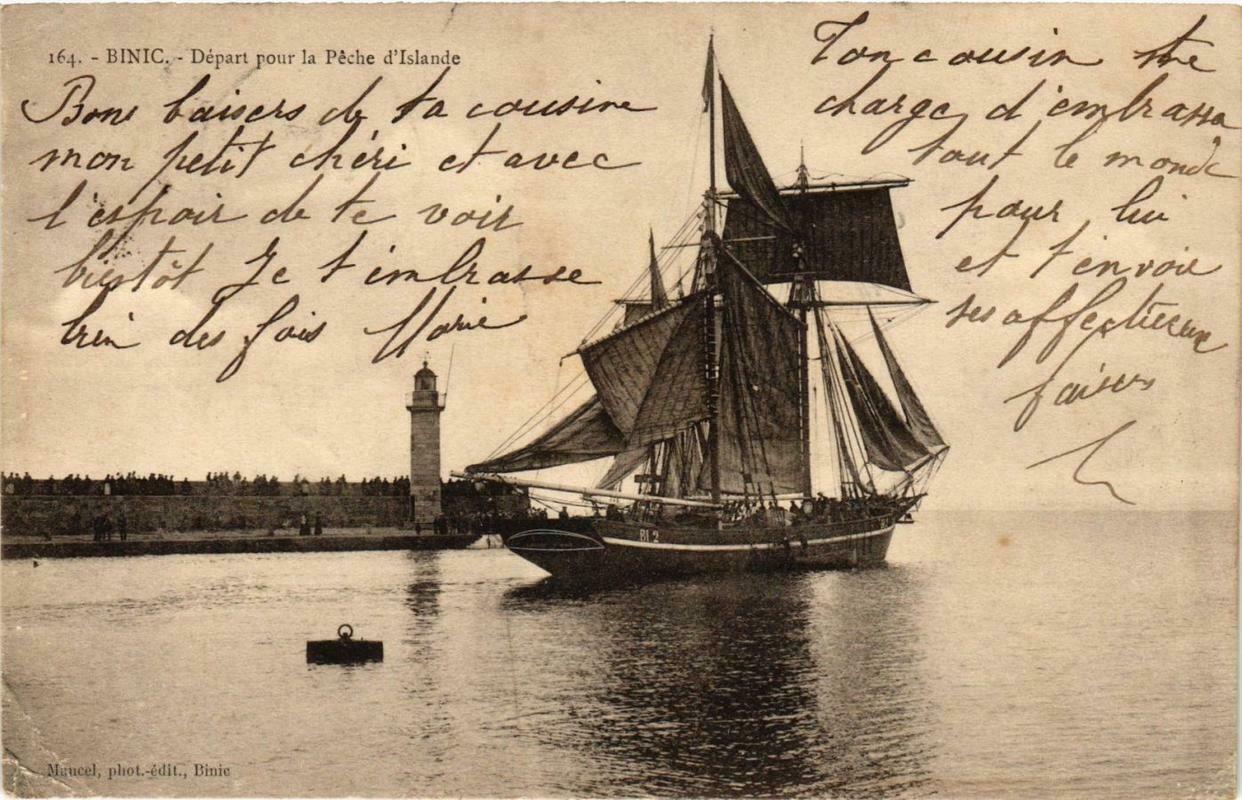 164. - BINIC. - Départ pour la Pêche d'Islande
Bons baisers de ta cousine
mon petit chéri et avec
l'espoir de te voir
bientôt Je t'embrasse
bien des fois Marie
Ton cousin me
charge d'embrasser
tout le monde
pour lui
et t'envoie
ses affectueux
baisers
BI 2
Maucel, phot.-édit., Binic